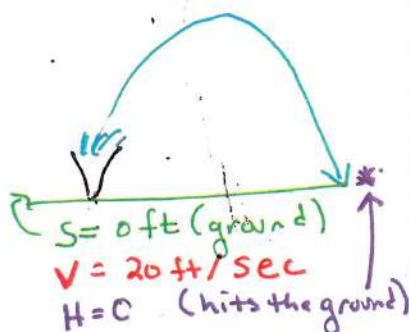 S = 0 ft (ground)
V = 20 ft/sec
H = C (hits the ground)